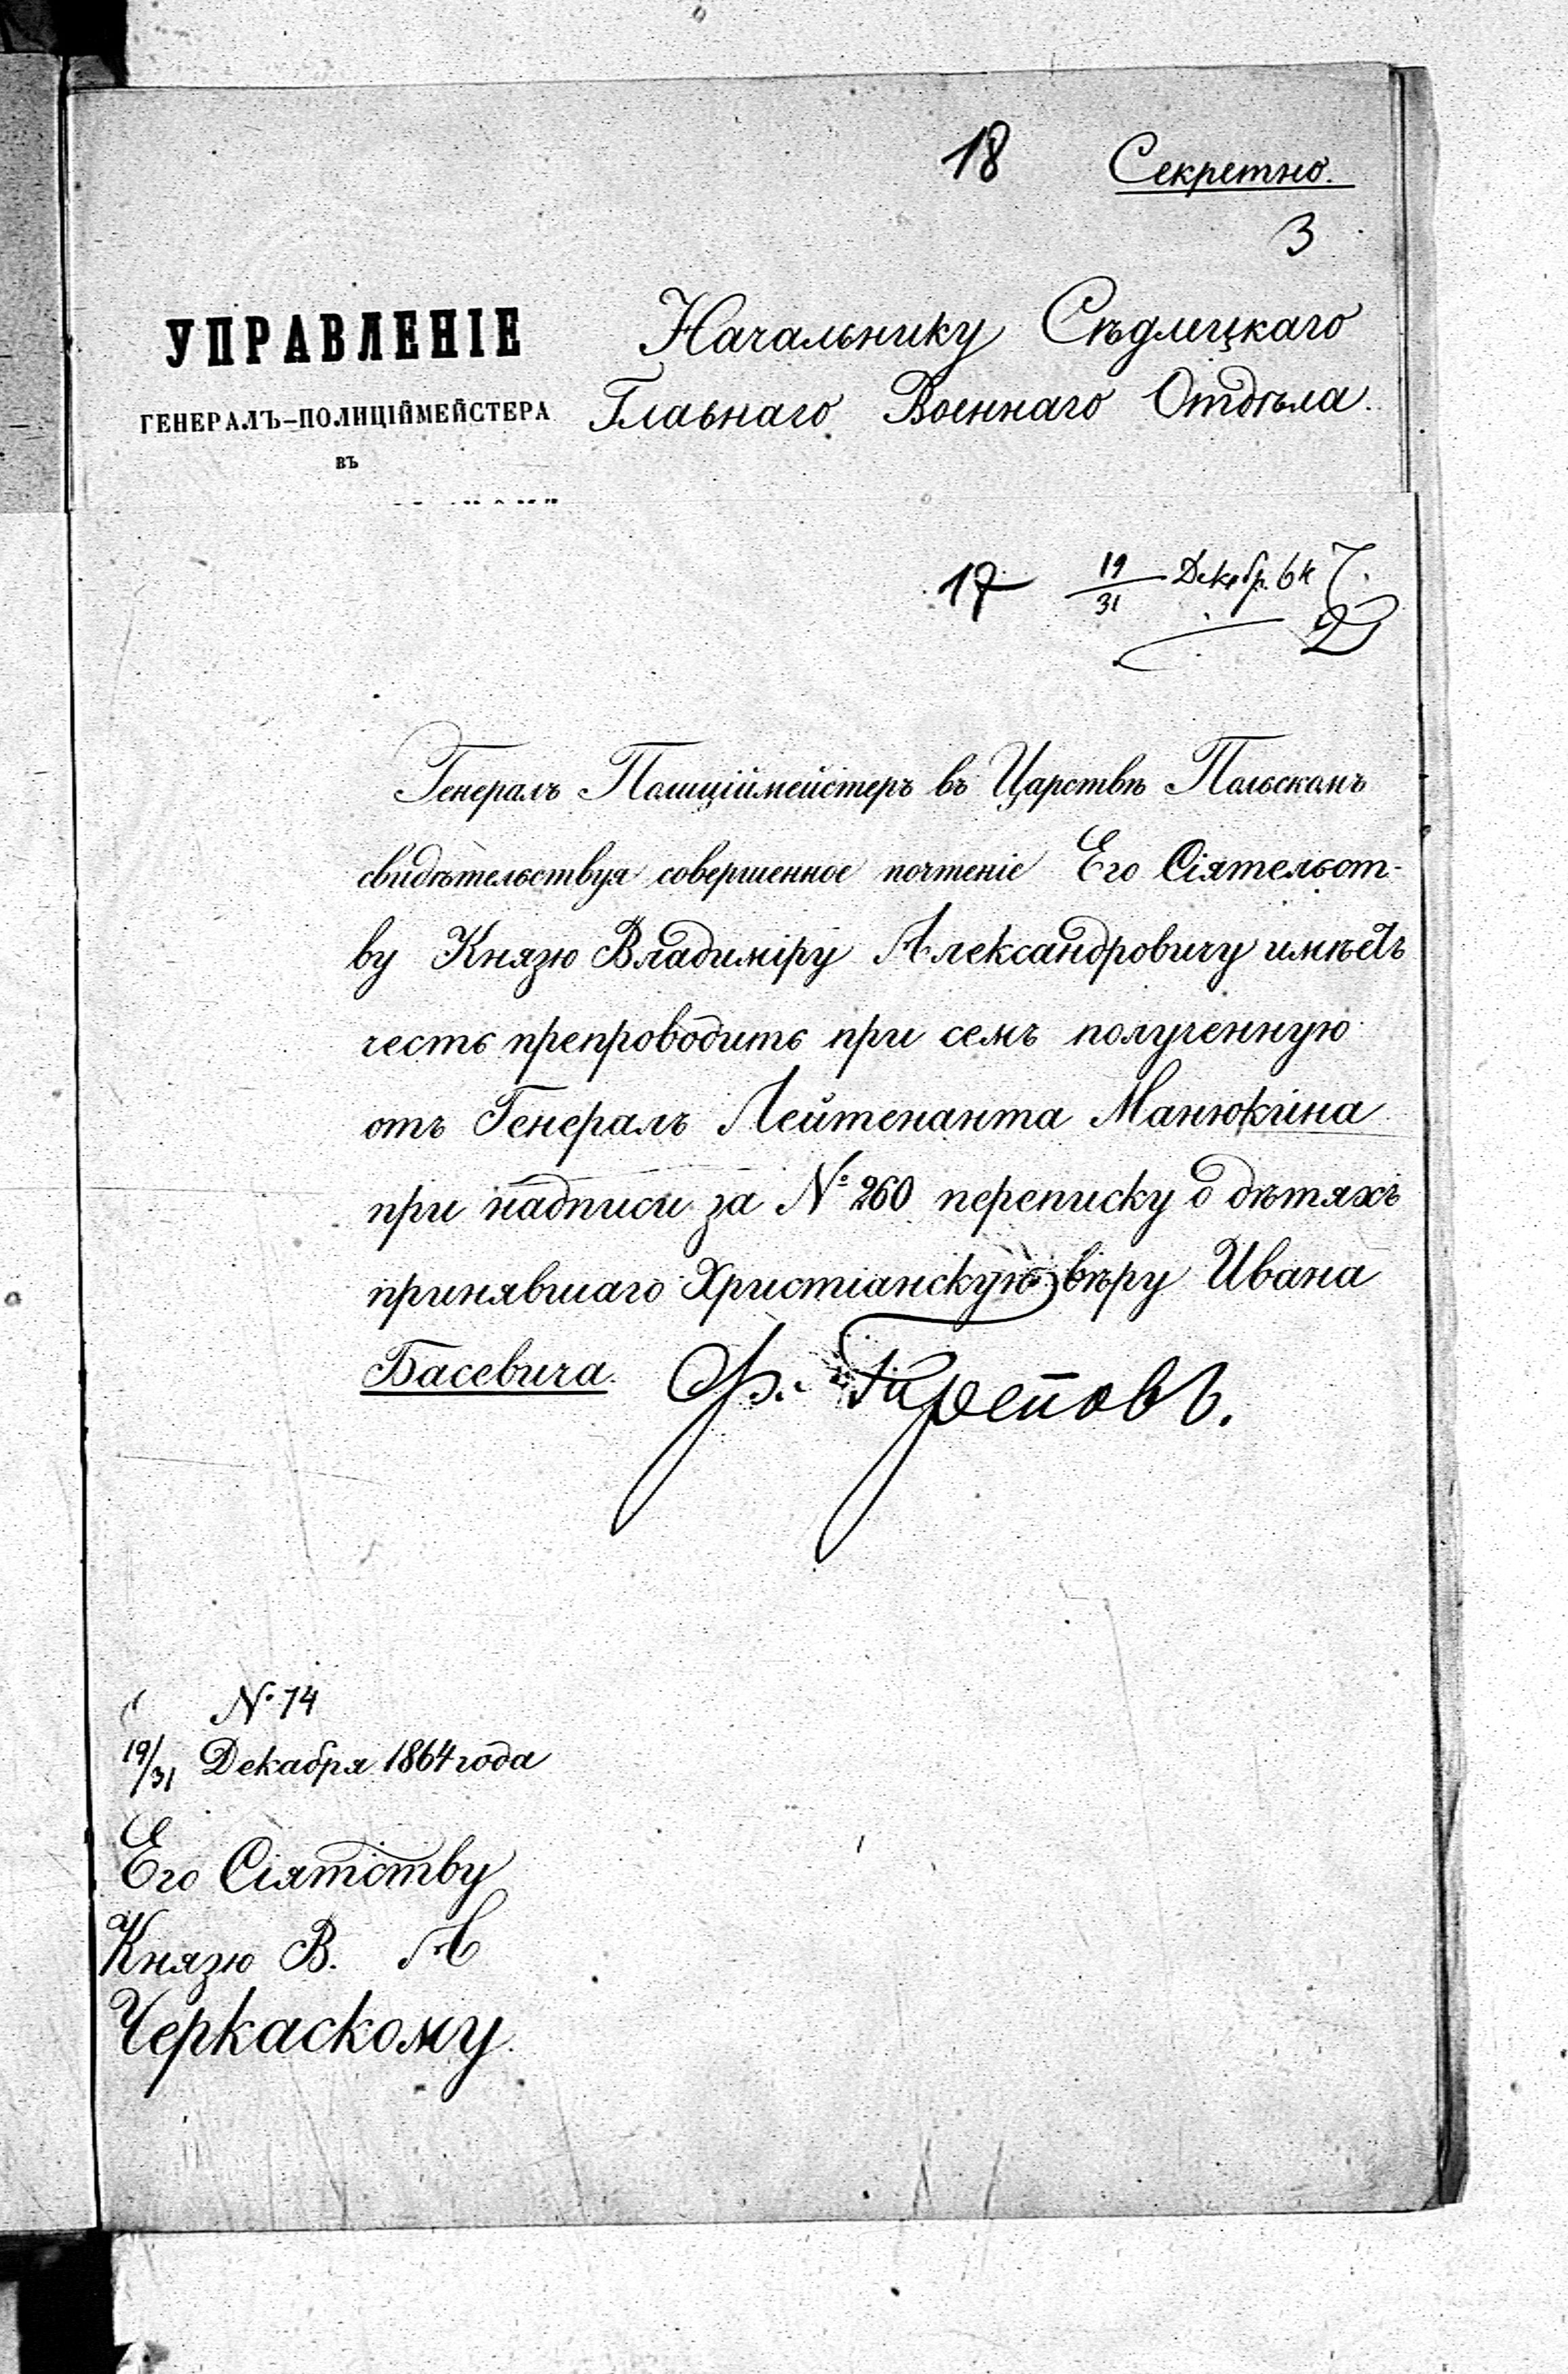 18 Секретно.
3
УПРАВЛЕНІЕ
ГЕНЕРАЛЪ-ПОЛИЦІЙМЕЙСТЕРА
ВЪ
Начальнику Сѣдлецкаго
Главнаго Военнаго Отдѣла.
17 19/31 Декабр. 64
Генералъ Полиціймейстеръ въ Царствѣ Польскомъ
свидѣтельствуя совершенное почтеніе Его Сіятельст-
ву Князю Владиміру Александровичу имѣетъ
честь препроводить при семъ полученную
отъ Генералъ Лейтенанта Манюкина
при надписи за № 260 переписку о дѣтяхъ
принявшаго Христіанскую вѣру Ивана
Басевича. Ф. Треповъ.
№ 14
19/31 Декабря 1864 года
Его Сіятству
Князю В. А
Черкаскому.